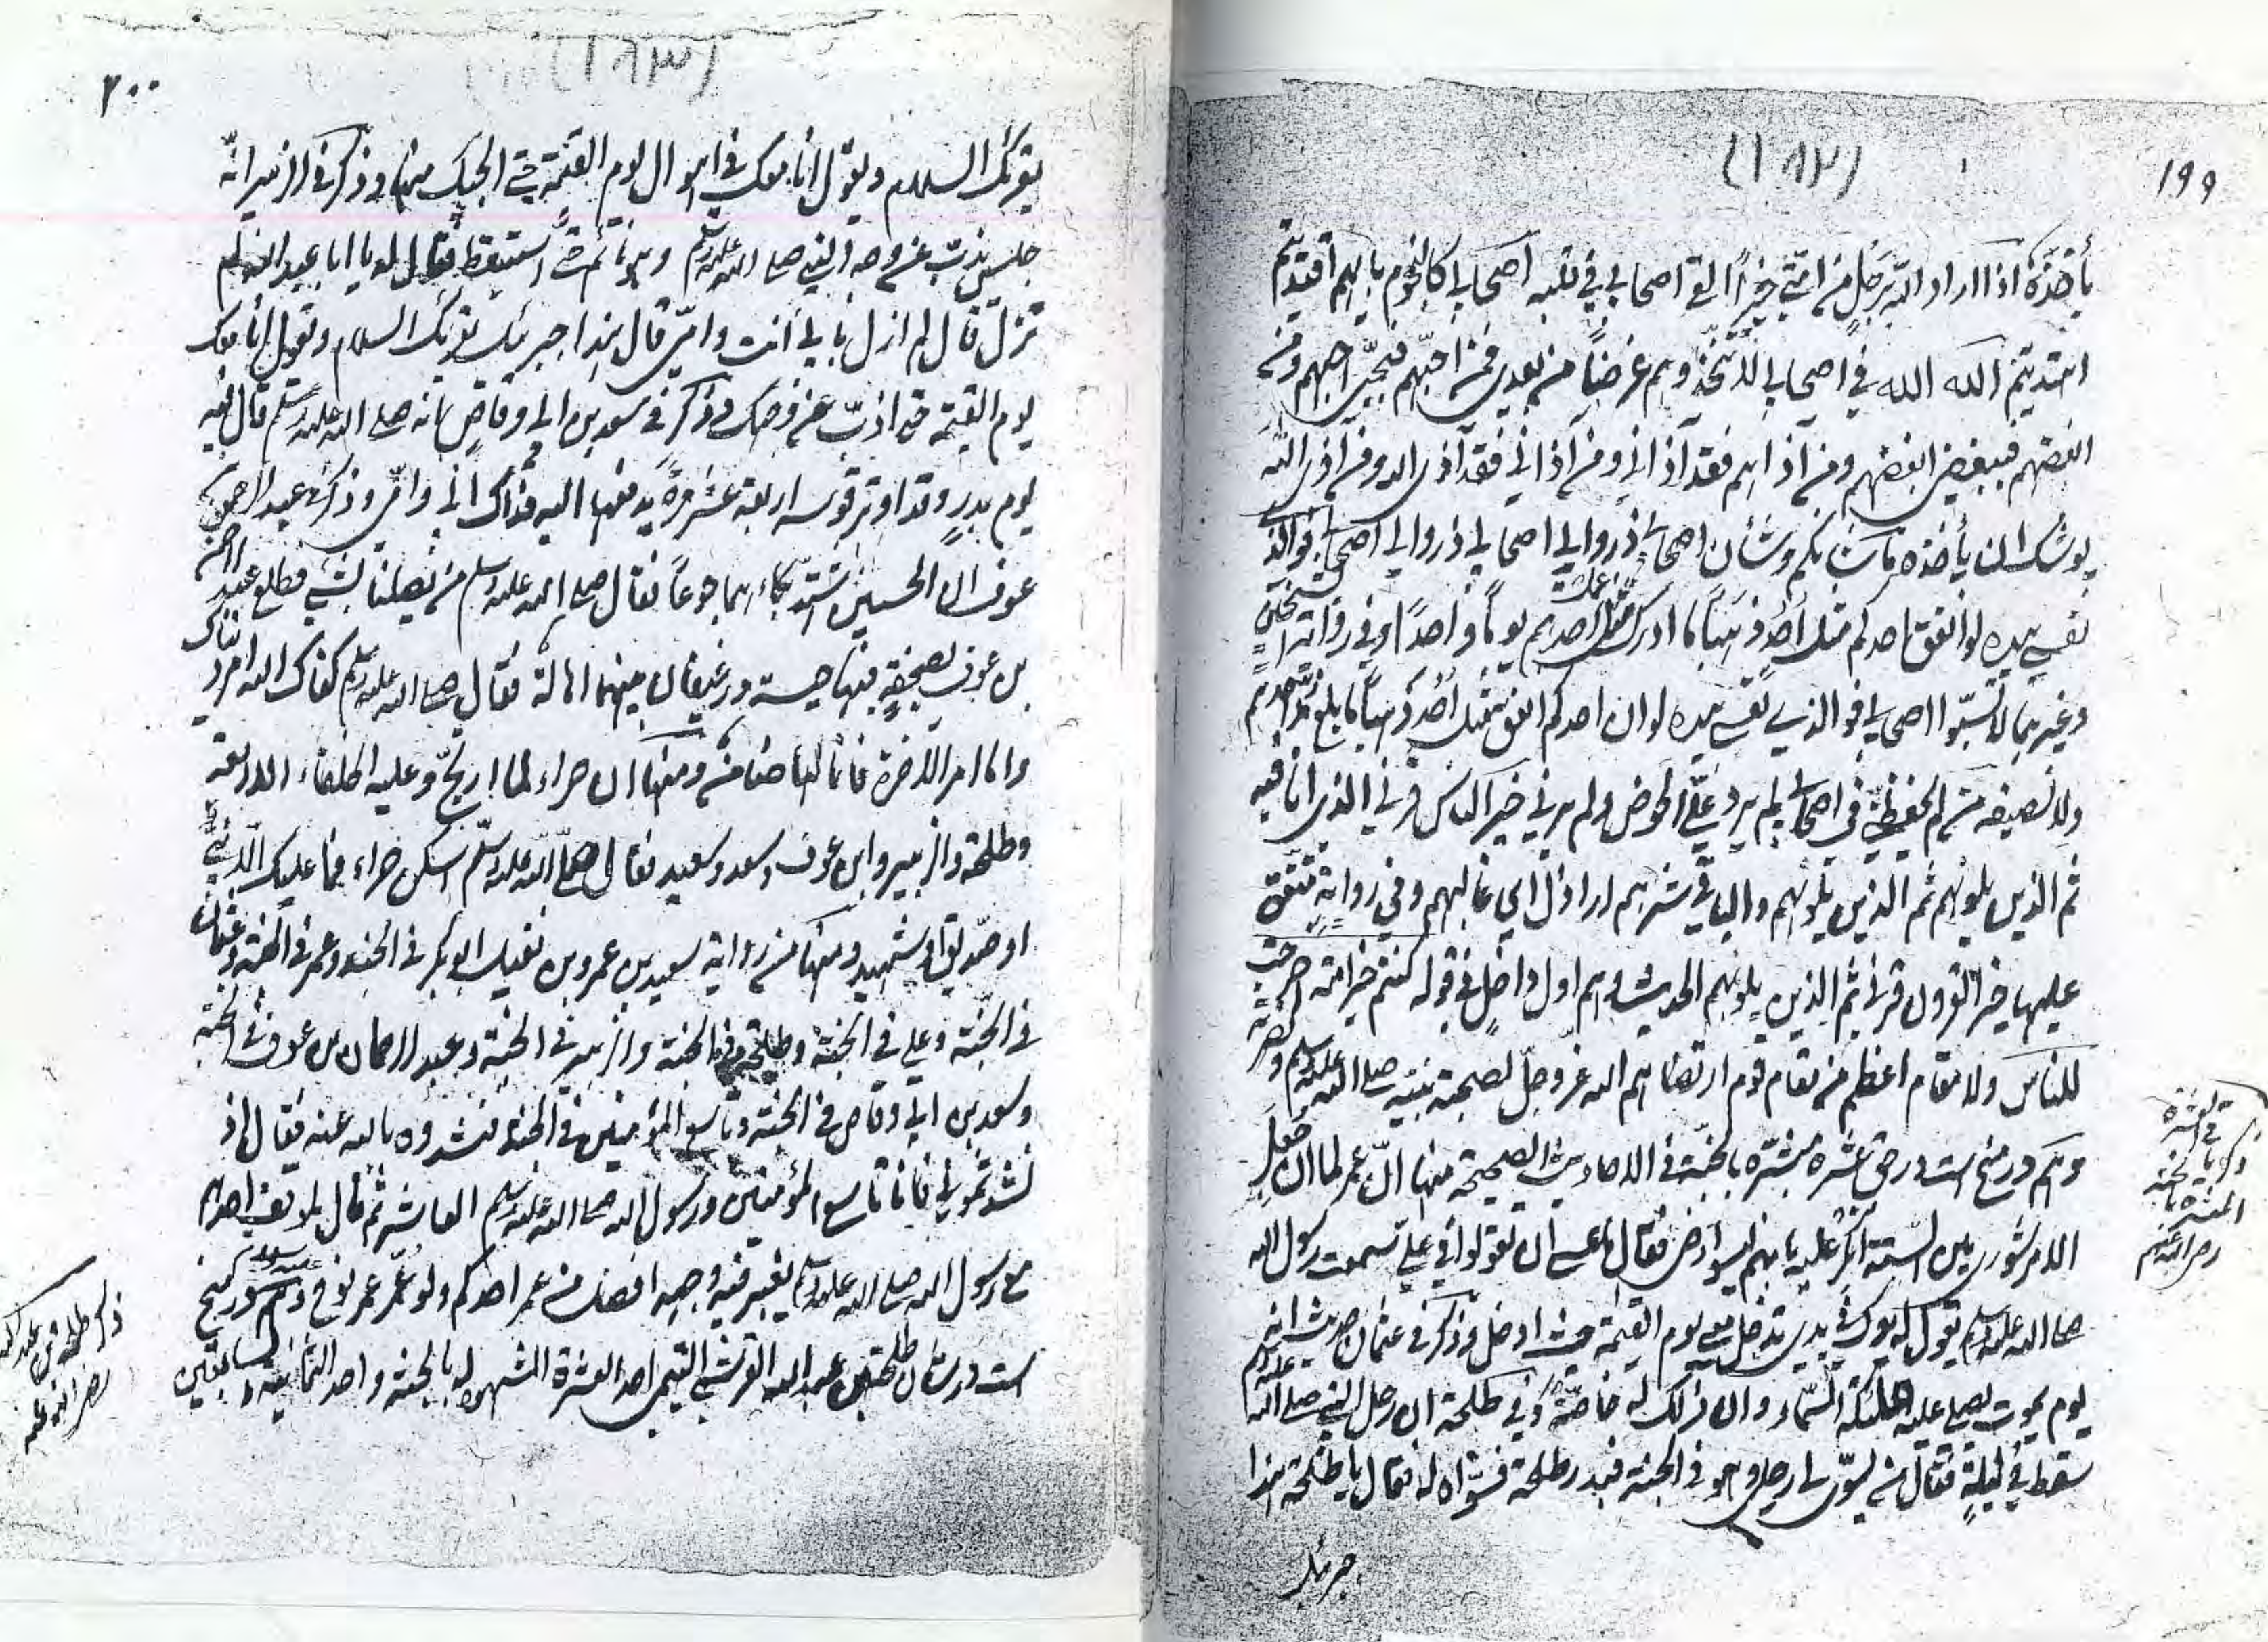 ١٩٩
(١٨٢)
يأخذه اذا اراد الله برجل من امتي خيراً القى اصحابي في قلبه اصحابي كالنجوم بايهم اقتديتم
اهتديتم الله الله في اصحابي لا تتخذوهم غرضاً من بعدي فمن احبهم فبحبي احبهم ومن
ابغضهم فببغضي ابغضهم ومن آذاهم فقد آذاني ومن آذاني فقد آذى الله ومن آذى الله
يوشك ان يأخذه ما شانكم وشأن اصحابي ذروا لي اصحابي ذروا لي اصحابي فوالذي
نفسي بيده لو انفق احدكم مثل أُحُدٍ ذهباً ما ادرك مثل عمل احدهم يوماً واحداً وفي رواية الشيخين
وغيرهما لا تسبّوا اصحابي فوالذي نفسي بيده لو ان احدكم انفق مثل أُحُد ذهباً ما بلغ مُدّ احدهم
ولا نصيفه من لم يحفظني في اصحابي لم يرد عليّ الحوض ولم يرني خير الناس قرني الذي انا فيه
ثم الذين يلونهم ثم الذين يلونهم والباقي شرهم اراذل اي غالبهم وفي رواية متفق
عليها خير القرون قرني ثم الذين يلونهم الحديث وهم اول داخل في قوله كنتم خير امة اخرجت
للناس ولا مقام اعظم من مقام قوم ارتضاهم الله عز وجل لصحبة نبيه صلى الله عليه وسلم ونصرته
وهم در منح است در حق عشره مبشّره بالجنة في الاحاديث الصحيحة منها انّ عمر لما ان جعل
الامر شورى بين الستة انكر عليه بانهم ليسوا رضى فقال ما عسى ان تقولوا في علي سمعت رسول الله
صلى الله عليه وسلم يقول له يدك في يدي تدخل معي يوم القيمة حيث ادخل وذكر في عثمان حديث انه
يوم يموت يصلي عليه ملائكة السماء وان ذلك له خاصة وفي طلحة ان رحل النبي صلى الله عليه وسلم
سقط في ليلة فقال من يسوّي لي رحلي وهو في الجنة فبدر طلحة فسوّاه له فقال يا طلحة هذا
جبرئيل
المبشرة بالجنة
رضي الله عنهم
٢٠٠
(١٨٣)
يقرئك السلام ويقول انا معك في اهوال يوم القيمة حتى انجيك منها وذكر في الزبير انّه
جلس يذبّ عن وجه النبي صلى الله عليه وسلم وهو نائم حتى استيقظ فقال له يا ابا عبد الله لم
تزل قال لم ازل بابي انت وامّي قال هذا جبرئيل يقرئك السلام ويقول انا معك
يوم القيمة حتى اذبّ عن وجهك وذكر في سعد بن ابي وقاص انه صلى الله عليه وسلم قال فيه
يوم بدرٍ وقد اوتر قوسه اربعة عشر مرة يدفعها اليه فداك ابي وامّي وذكر في عبد الرحمن بن
عوف ان الحسنين اشتدّ بكاءهما جوعاً فقال صلى الله عليه وسلم من يصلنا بشيء فطلع عبد الرحمن
بن عوف بصحفةٍ فيها حيسة ورغيفان بينهما اهالة فقال صلى الله عليه وسلم كفاك الله امر دنياك
واما امر الآخرة فانا لها ضامن ومنها ان حراء لما ارتجّ وعليه الخلفاء الاربعة
وطلحة والزبير وابن عوف وسعد وسعيد فقال صلى الله عليه وسلم اسكن حراء فما عليك الا نبيّ
او صدّيق او شهيد ومنها من رواية سعيد بن عمرو بن نفيل ابو بكر في الجنة وعمر في الجنة وعثمان
في الجنة وعلي في الجنة وطلحة في الجنة والزبير في الجنة وعبد الرحمان بن عوف في الجنة
وسعد بن ابي وقاص في الجنة وتاسع المؤمنين في الجنة فنشدوه بالله عنه فقال اذ
نشدتموني فانا تاسع المؤمنين ورسول الله صلى الله عليه وسلم العاشر ثم قال لموقف احدهم
مع رسول الله صلى الله عليه وسلم يغبر فيه وجهه افضل من عمر احدكم ولو عمّر عمر نوح وهم در منح
است در شان طلحة بن عبد الله القرشي التيمي احد العشرة المشهود له بالجنة واحد الثمانية السابقين
ذكر طلحة بن عبد الله
رضي الله عنه